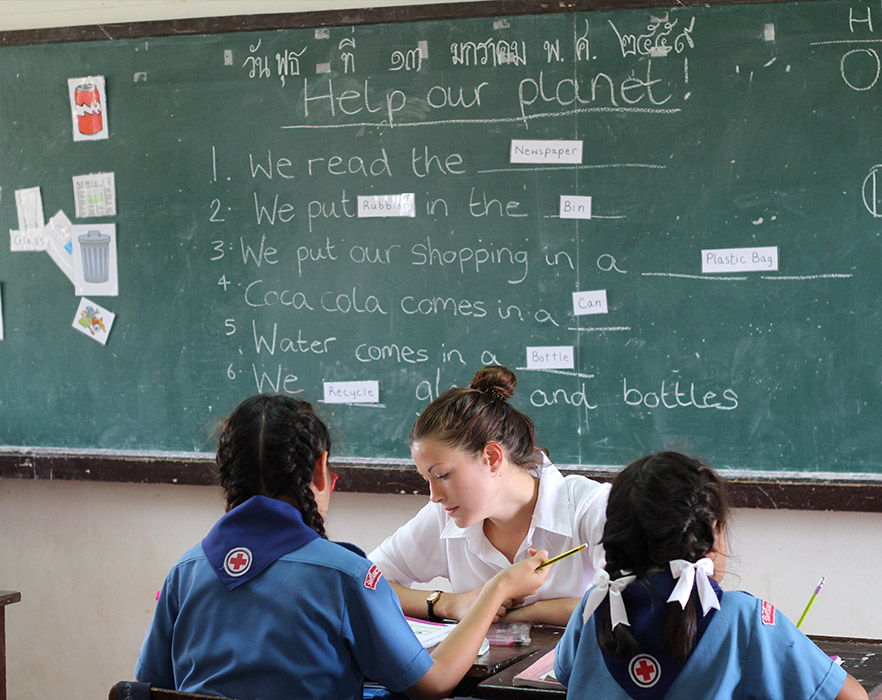 วันพุธ ที่ ๑๓ มกราคม พ.ศ. ๒๕๕๙
Help our planet!
1. We read the Newspaper
2. We put Rubbish in the Bin
3. We put our shopping in a Plastic Bag
4. Coca cola comes in a Can
5. Water comes in a Bottle
6. We Recycle and bottles
Glass
H